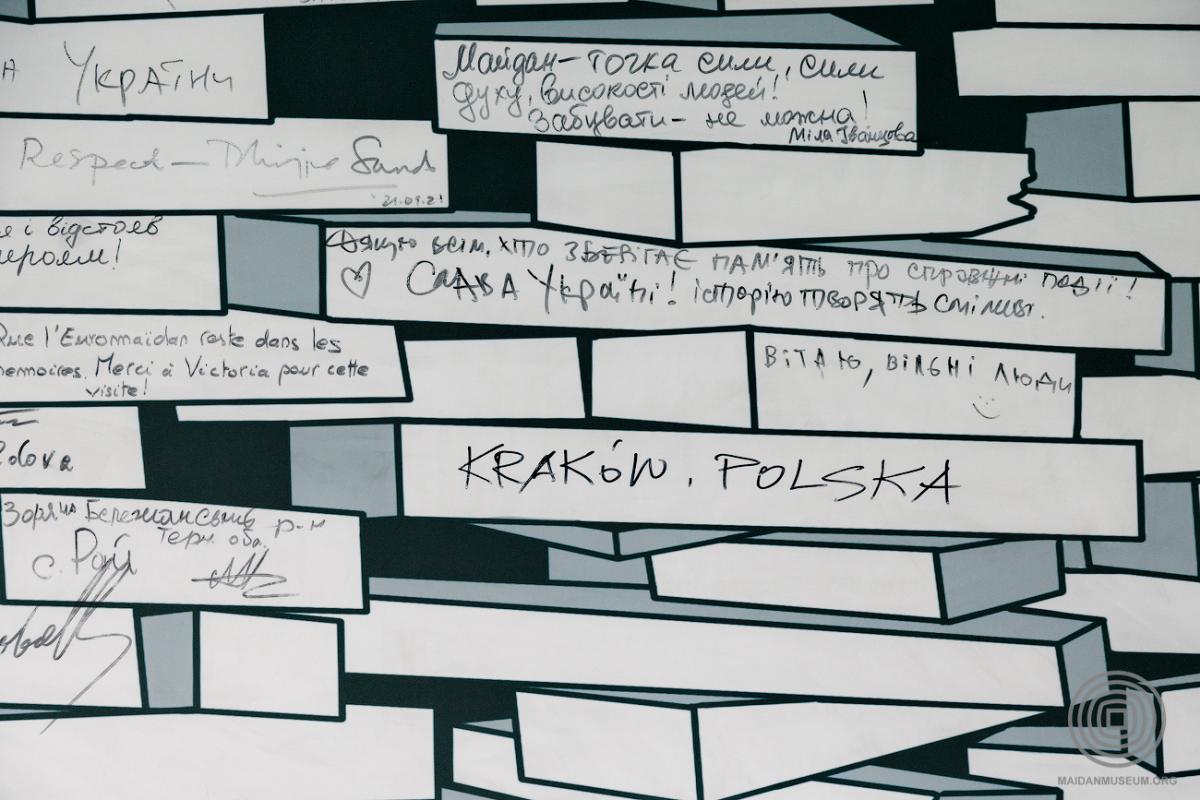 України
Майдан – точка сили, сили
духу, високості людей!
Забувати – не можна!
Міла Іванцова
Respect –
21.09.21
і відстояв
героям!
Дякую всім, хто зберігає пам'ять про справжні події!
Слава Україні! історію творять сміливі.
Que l'Euromaïdan reste dans les
mémoires. Merci à Victoria pour cette
visite!
Вітаю, вільні люди
KRAKÓW, POLSKA
Бережанський р-н
Терн. обл.
с. Рай
MAIDANMUSEUM.ORG